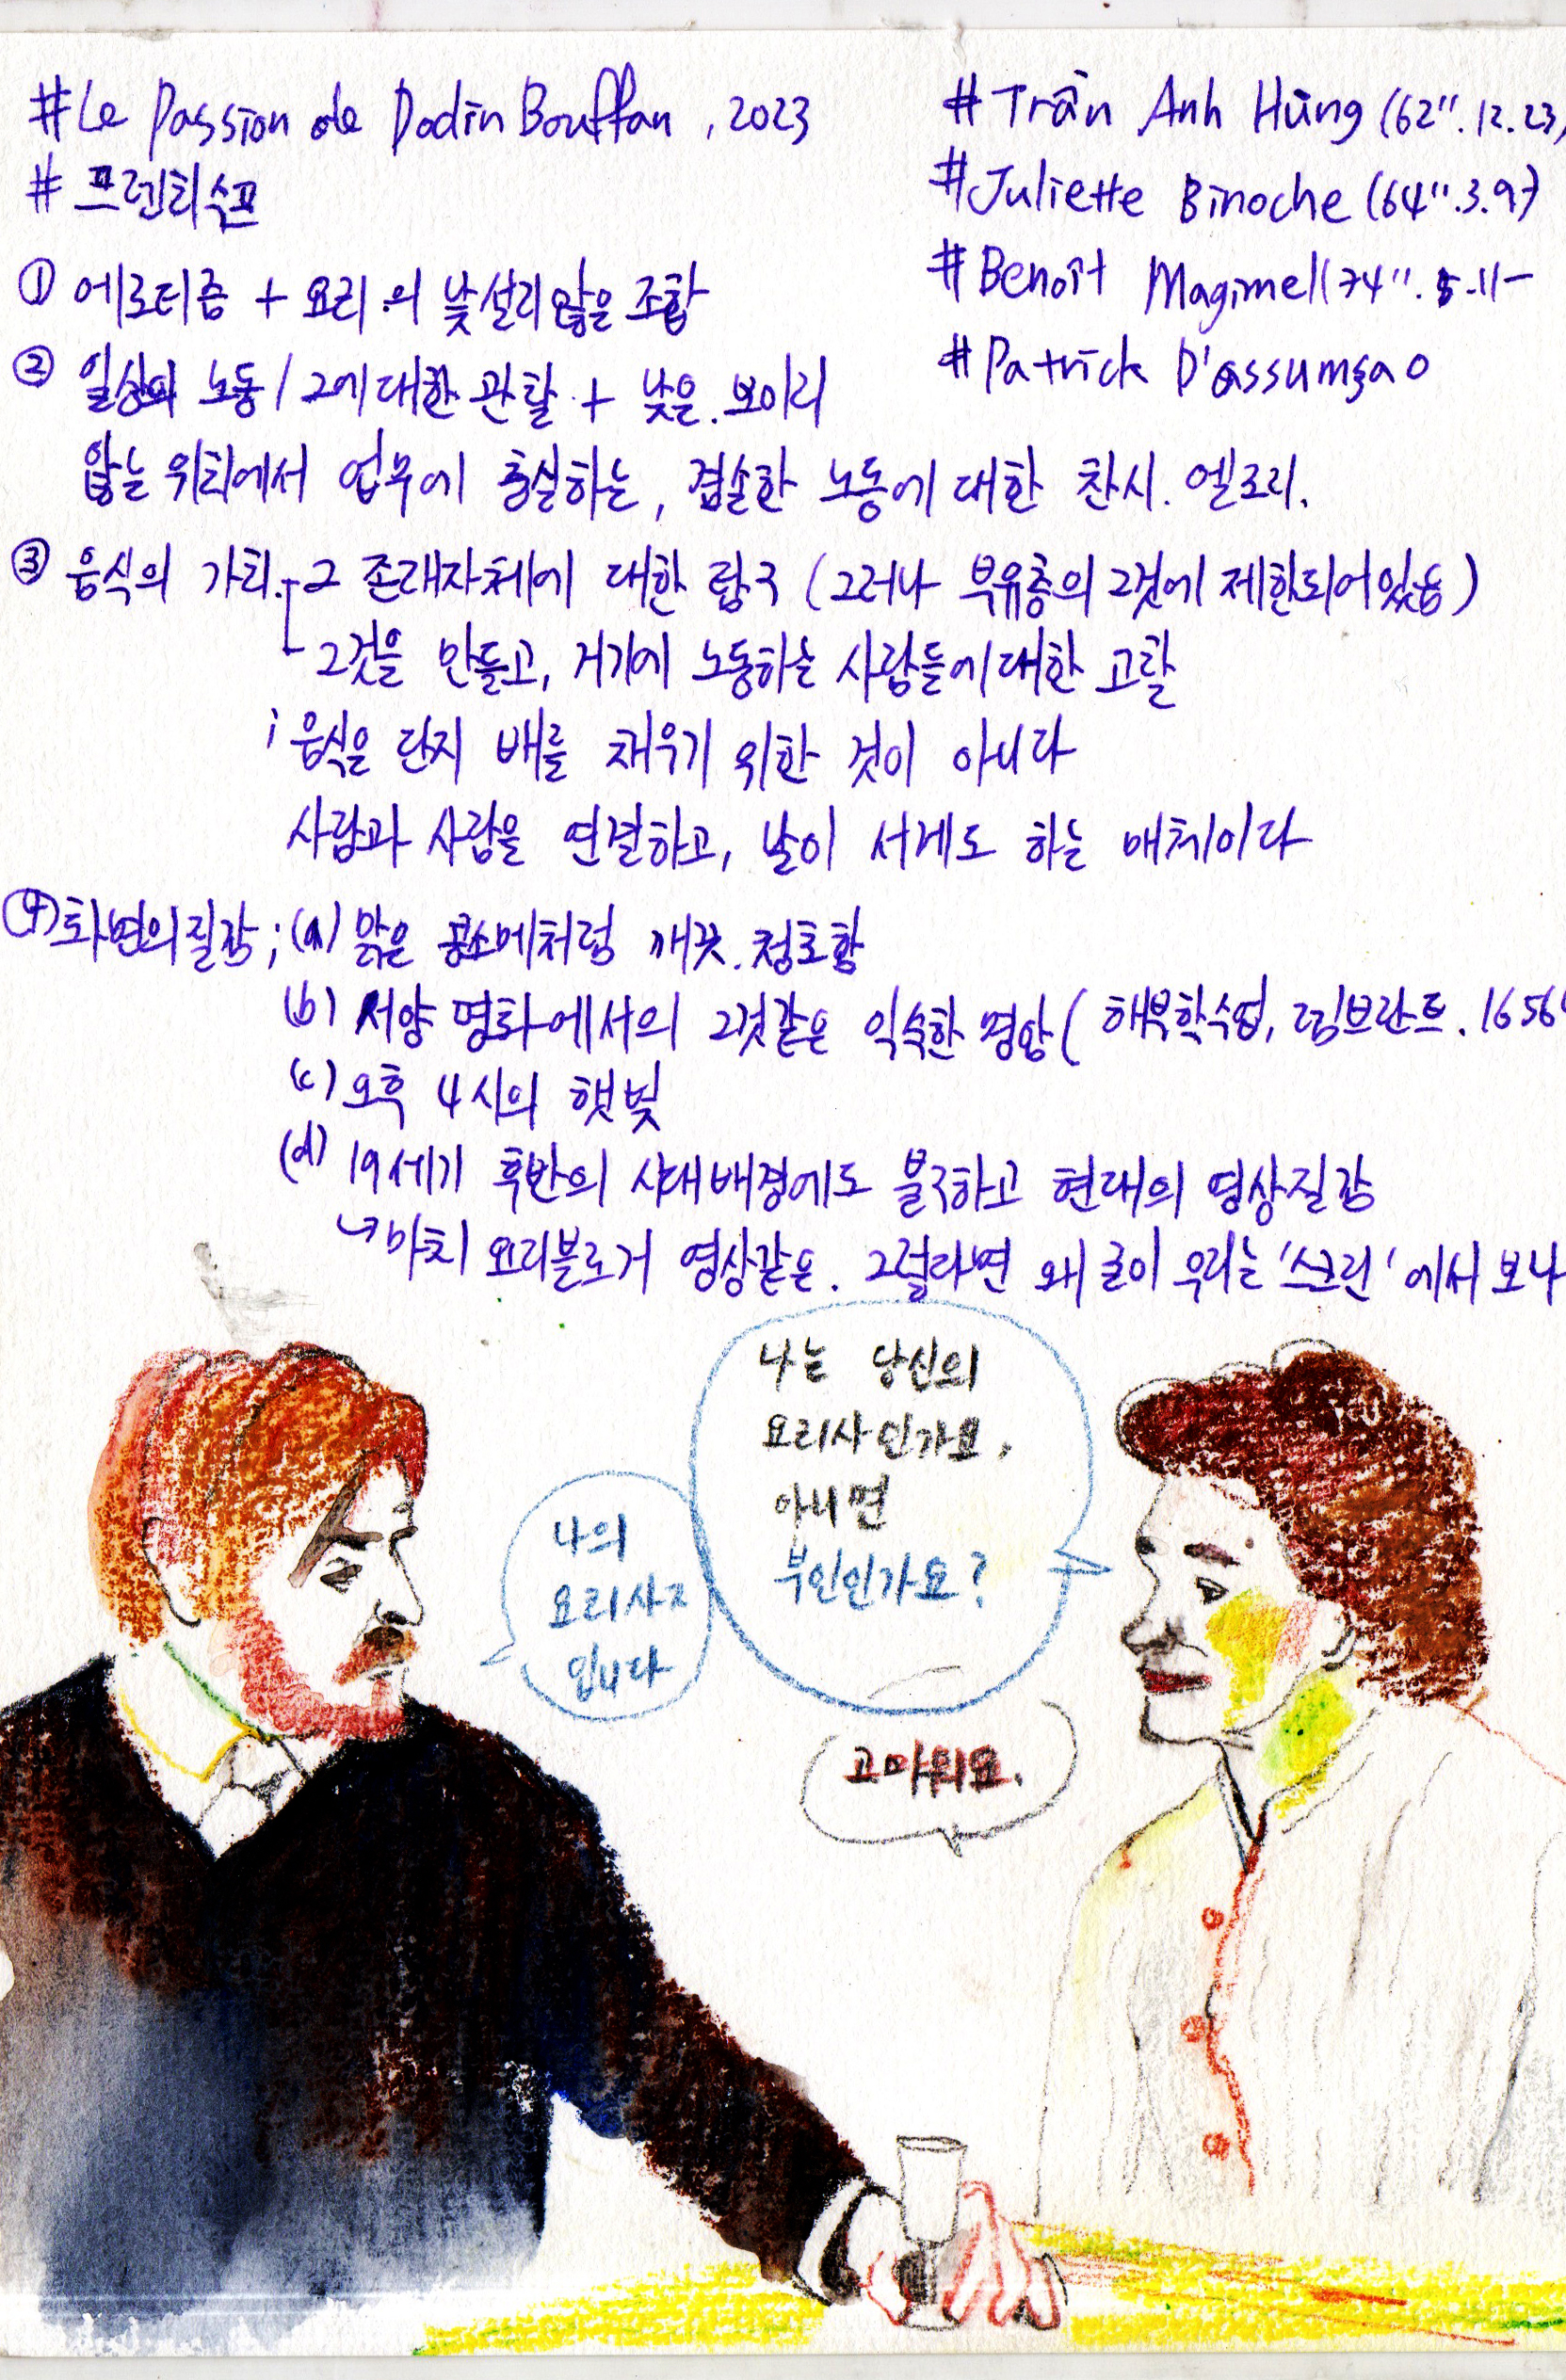 #Le Passion de Dodin Bouffan, 2023
#프렌치수프
#Trần Anh Hùng (62".12.23)
#Juliette Binoche (64".3.9)
#Benoît Magimel (74".5.11-
#Patrick D'assumçao
① 에로티즘 + 요리의 낯설지 않은 조합
② 일상의 노동 / 그에 대한 관찰 + 낮은. 보이지
않는 위치에서 업무에 충실하는, 겸손한 노동에 대한 찬시. 엘로리.
③ 음식의 가치 그 존재자체에 대한 탐구 (그러나 부유층의 그것에 제한되어있음)
그것을 만들고, 거기에 노동하는 사람들에 대한 고찰
; 음식은 단지 배를 채우기 위한 것이 아니다
사람과 사람을 연결하고, 날이 서게도 하는 매체이다
④ 화면의 질감; (a) 맑은 콩소메처럼 깨끗. 청초함
(b) 서양 명화에서의 그것같은 익숙한 명암 (해부학수업, 렘브란트. 1656
(c) 오후 4시의 햇빛
(d) 19세기 후반의 시대배경에도 불구하고 현대의 영상질감
↳ 마치 요리블로거 영상같은. 그럴라면 왜 굳이 우리는 '스크린'에서 보나
나는 당신의
요리사인가요,
아니면
부인인가요?
나의
요리사
입니다
고마워요.